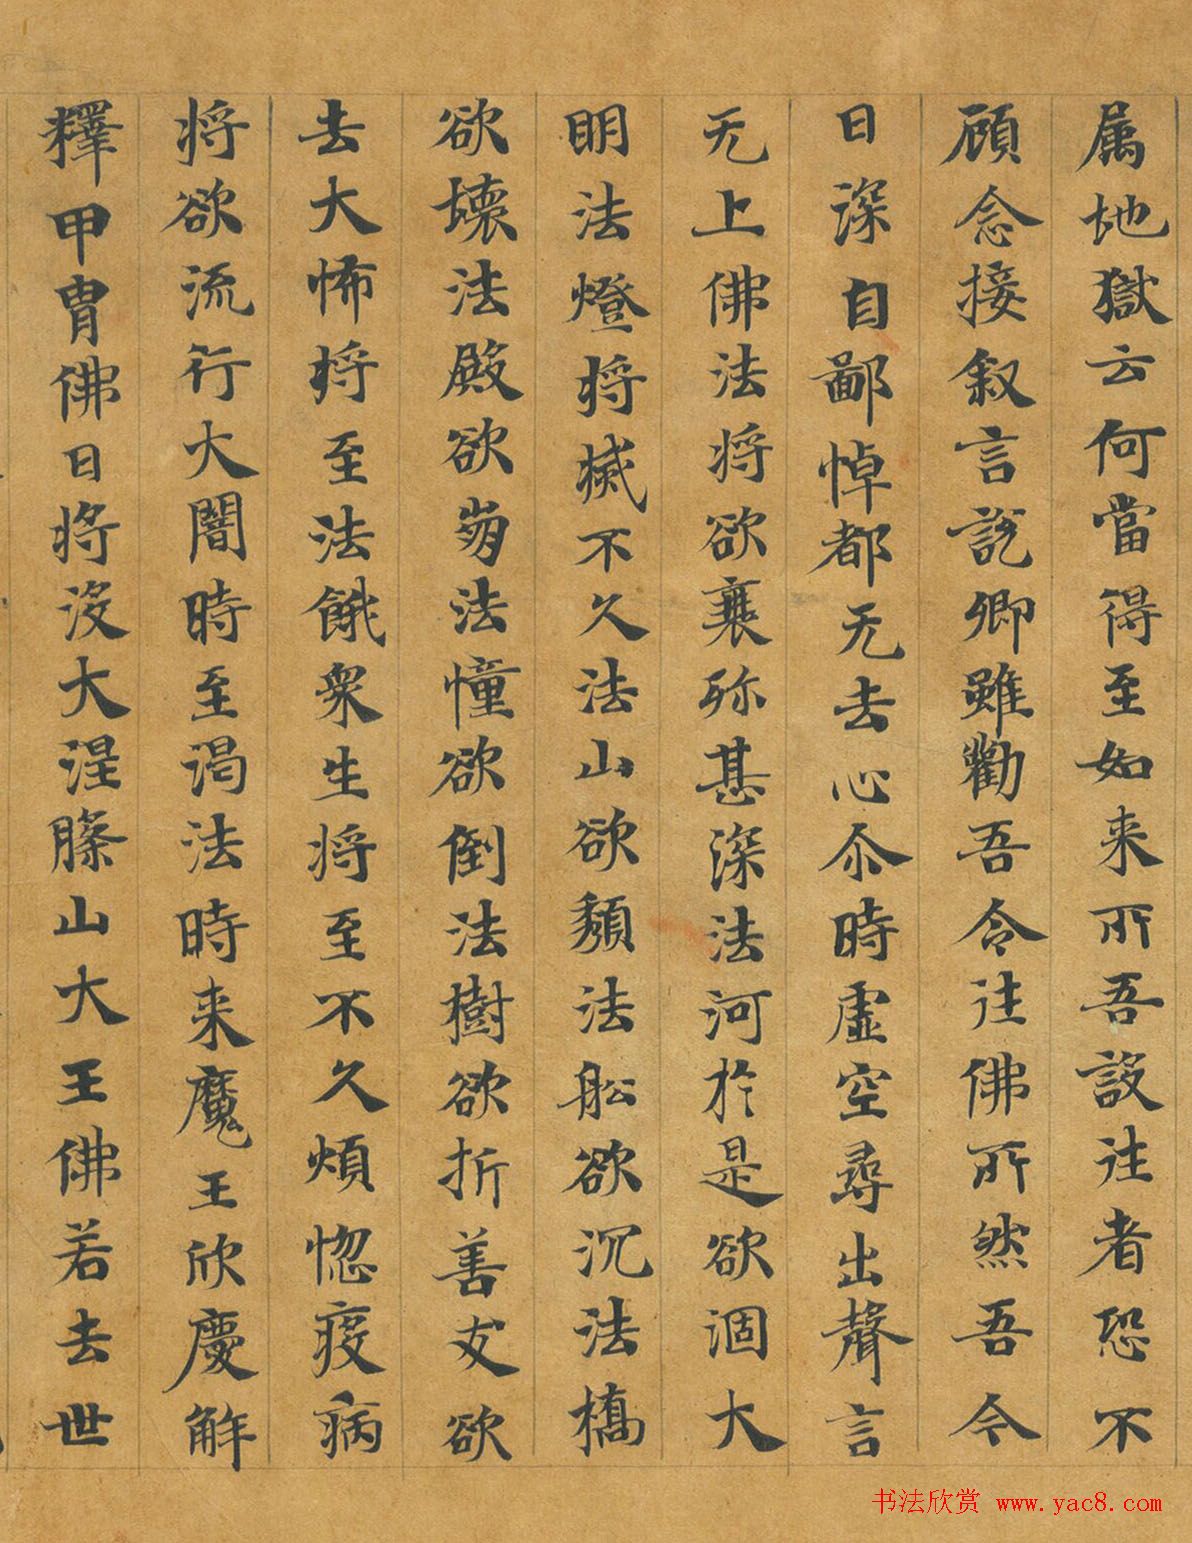 属地獄云何當得至如来所吾設往者恐不
顧念接叙言說卿雖勸吾令往佛所然吾今
日深自鄙悼都无去心尒時虛空尋出聲言
无上佛法將欲衰殄甚深法河於是欲涸大
明法燈將滅不久法山欲頹法舩欲沉法橋
欲壞法殿欲崩法幢欲倒法樹欲折善友欲
去大怖將至法餓衆生將至不久煩惱疫病
將欲流行大闇時至渴法時来魔王欣慶解
釋甲胄佛日將没大涅槃山大王佛若去世
书法欣赏 www.yac8.com